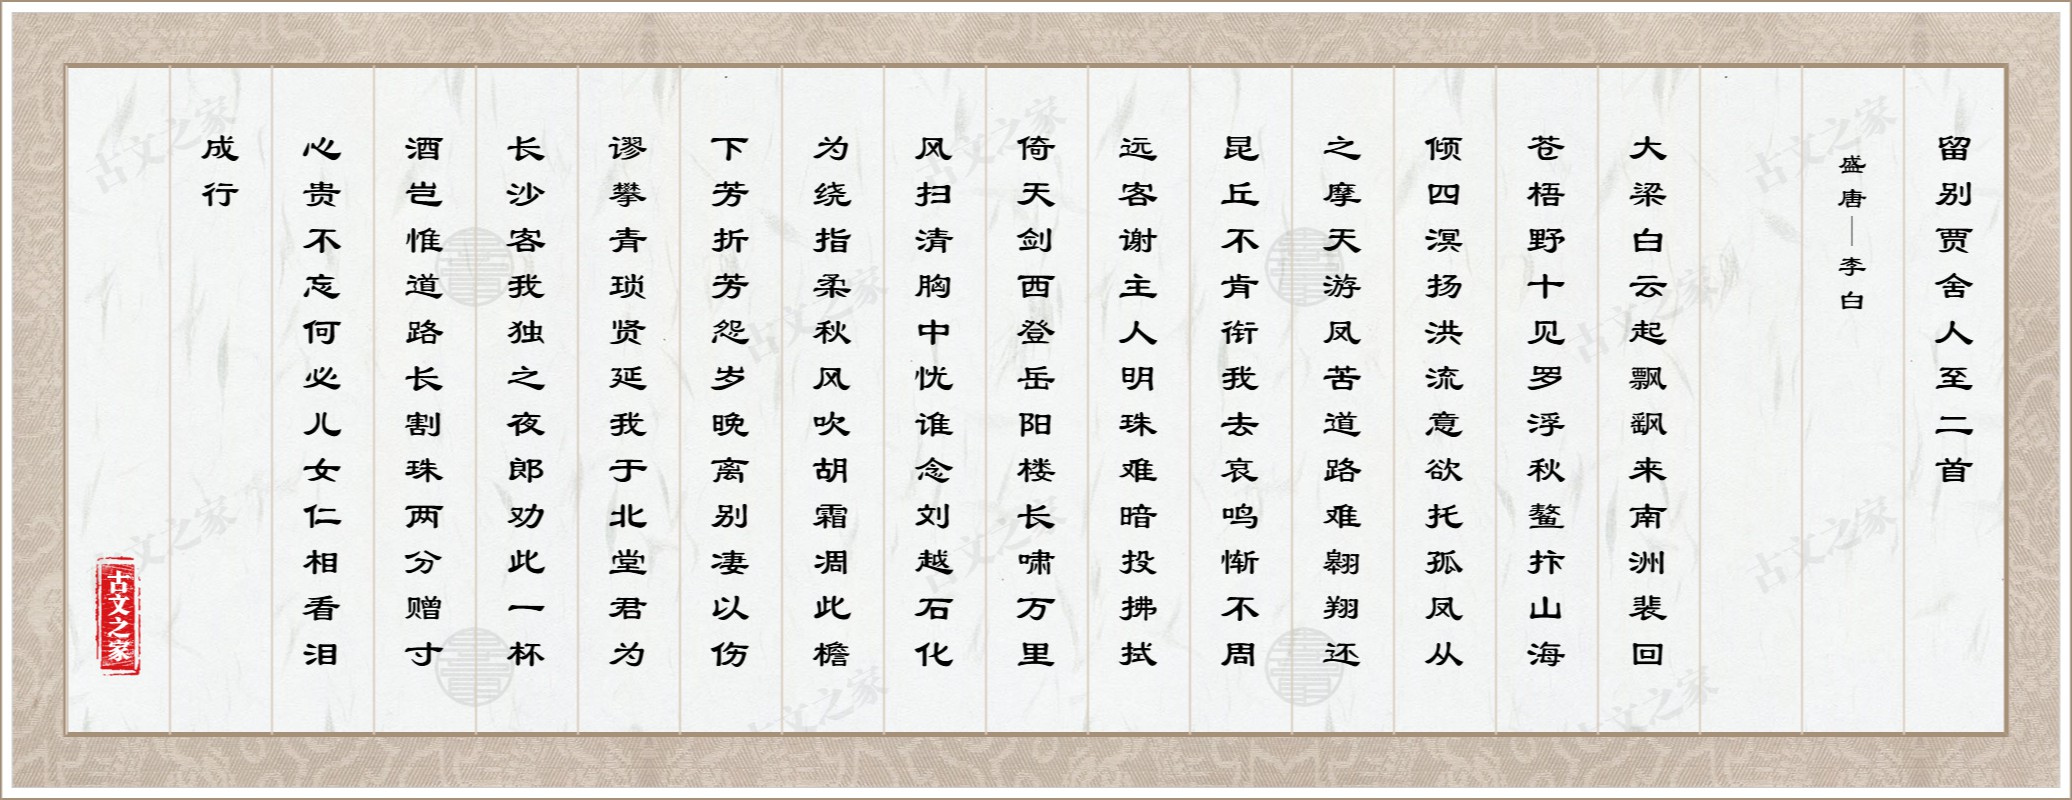 留别贾舍人至二首
盛唐—李白
大梁白云起飘飖来南洲裴回
苍梧野十见罗浮秋鳌抃山海
倾四溟扬洪流意欲托孤凤从
之摩天游凤苦道路难翱翔还
昆丘不肯衔我去哀鸣惭不周
远客谢主人明珠难暗投拂拭
倚天剑西登岳阳楼长啸万里
风扫清胸中忧谁念刘越石化
为绕指柔秋风吹胡霜凋此檐
下芳折芳怨岁晚离别凄以伤
谬攀青琐贤延我于北堂君为
长沙客我独之夜郎劝此一杯
酒岂惟道路长割珠两分赠寸
心贵不忘何必儿女仁相看泪
成行
古文之家